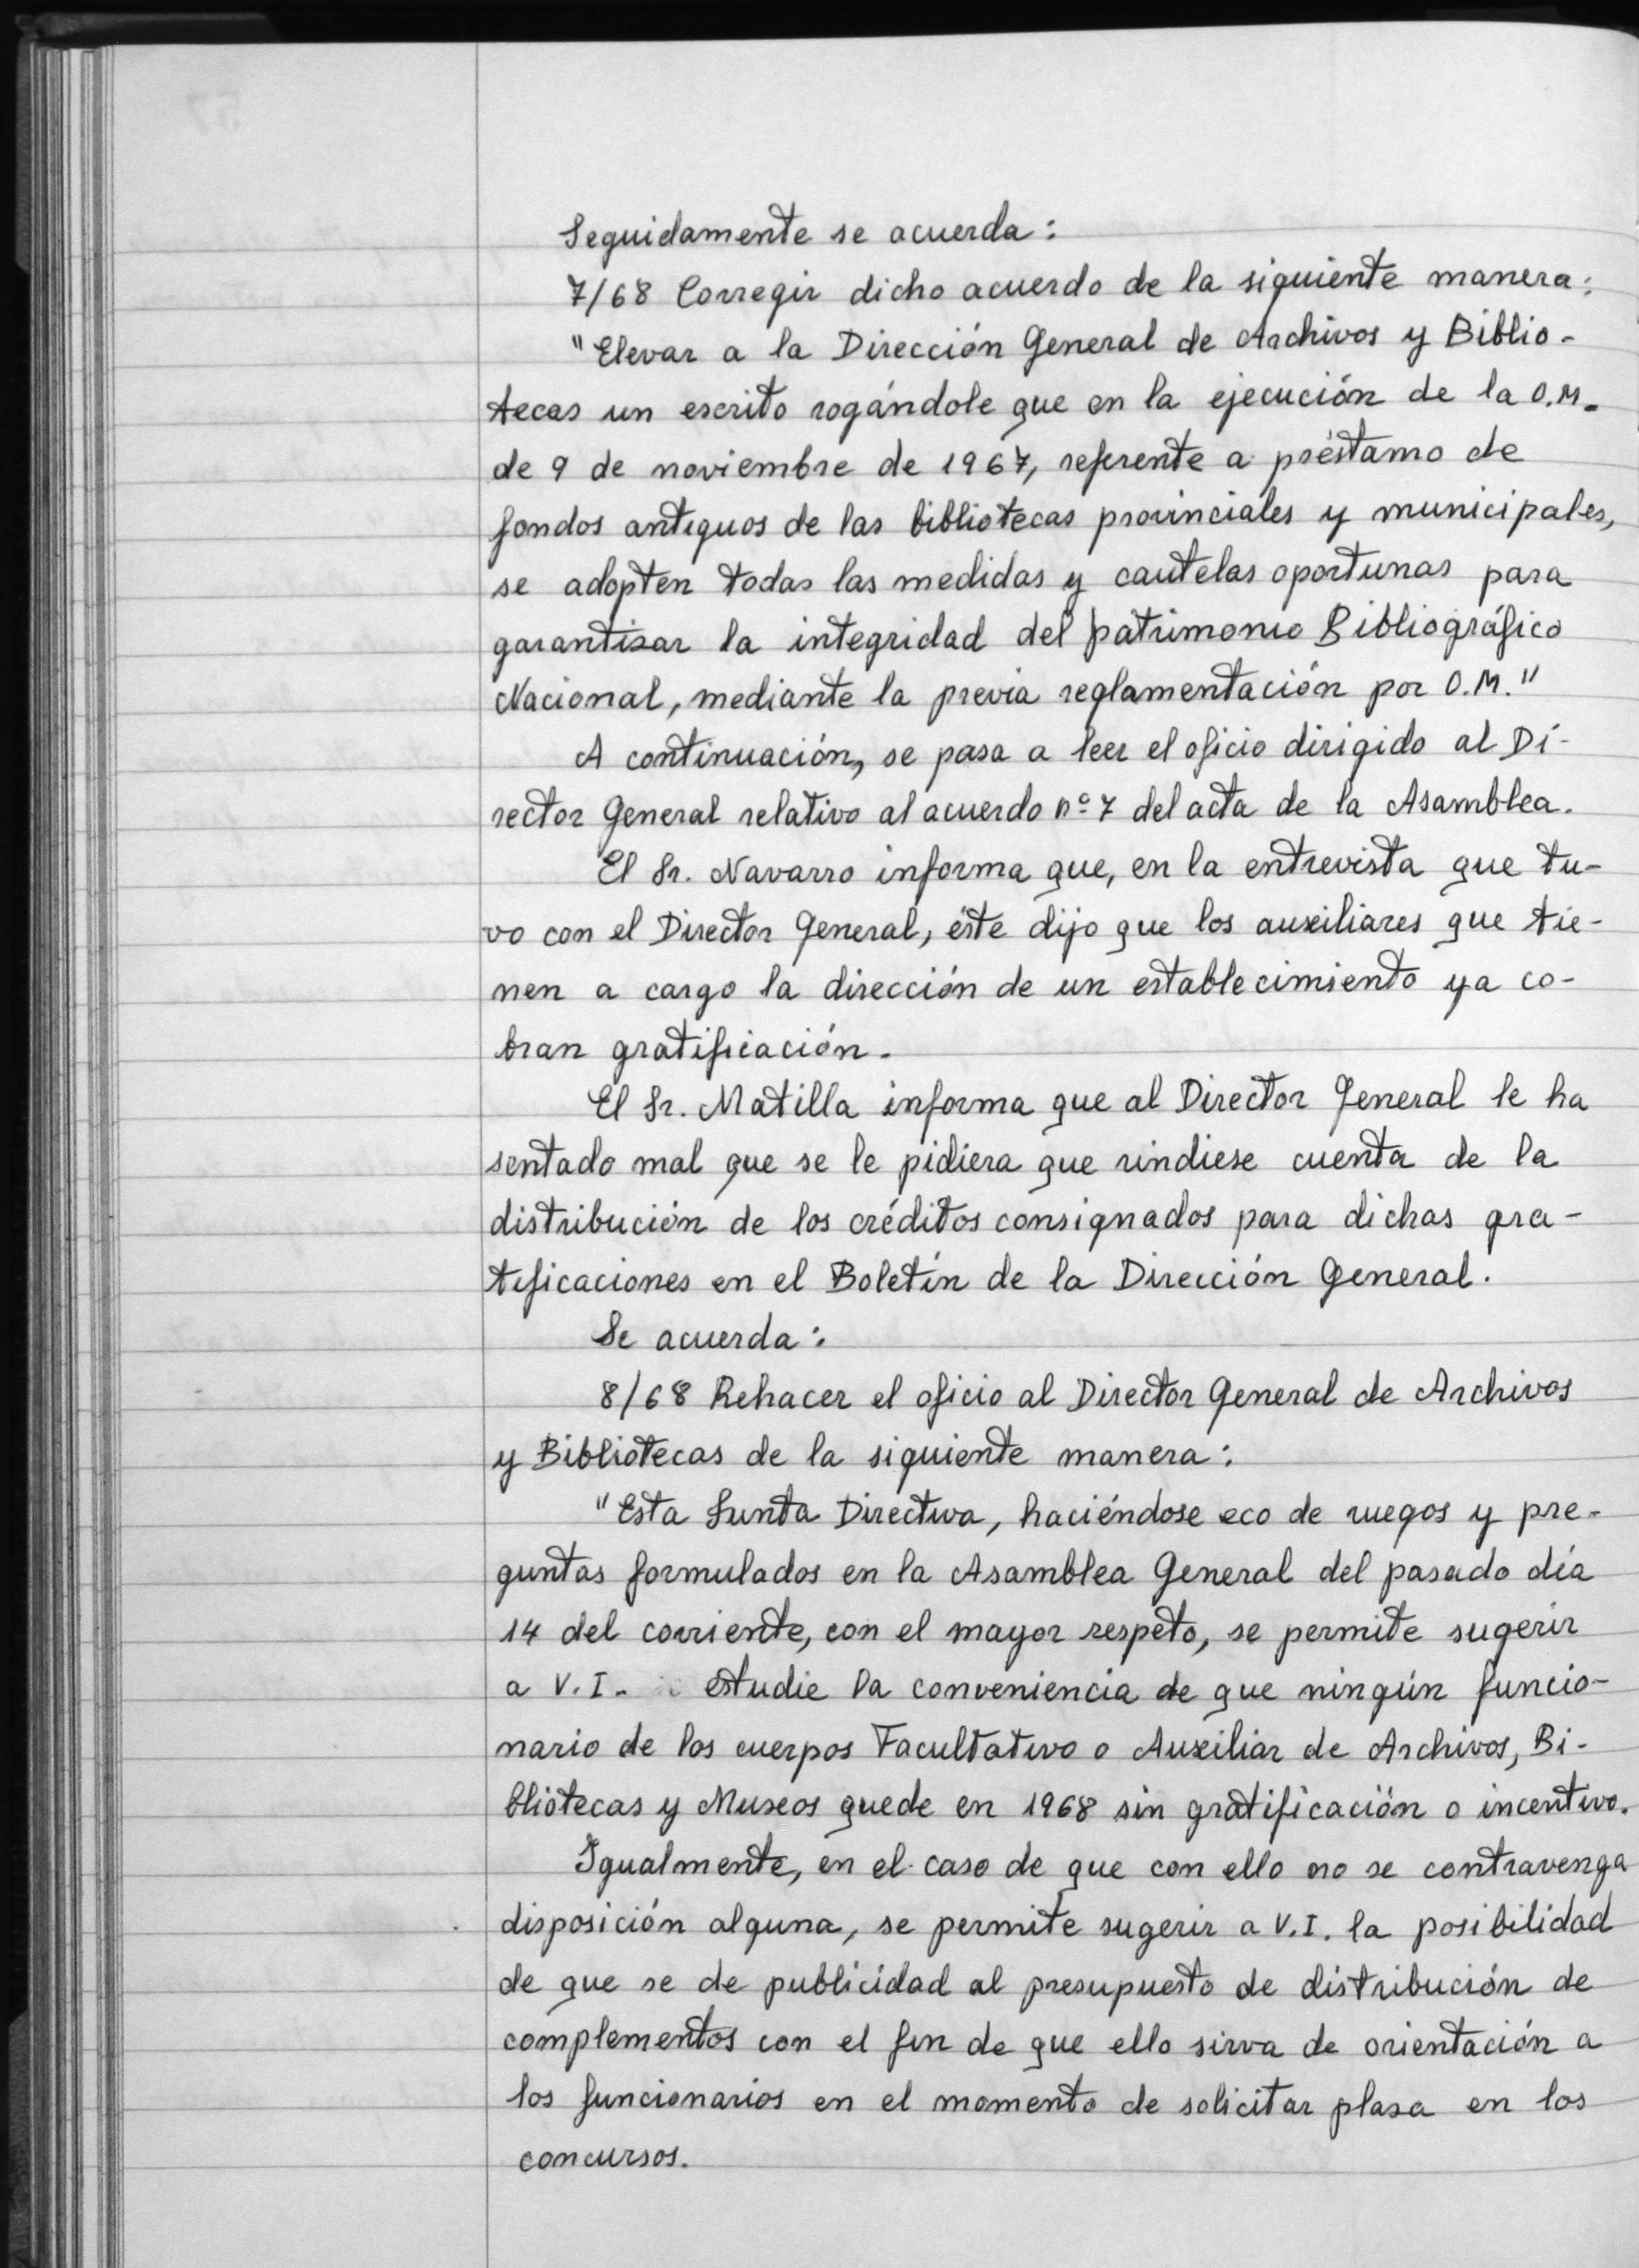 Seguidamente se acuerda:
7/68 Corregir dicho acuerdo de la siguiente manera:
"Elevar a la Dirección General de Archivos y Biblio-
tecas un escrito rogándole que en la ejecución de la O.M.
de 9 de noviembre de 1967, referente a préstamo de
fondos antiguos de las bibliotecas provinciales y municipales,
se adopten todas las medidas y cautelas oportunas para
garantizar la integridad del patrimonio Bibliográfico
Nacional, mediante la previa reglamentación por O.M."
A continuación, se pasa a leer el oficio dirigido al Di-
rector General relativo al acuerdo nº 7 del acta de la Asamblea.
El Sr. Navarro informa que, en la entrevista que tu-
vo con el Director General, éste dijo que los auxiliares que tie-
nen a cargo la dirección de un establecimiento ya co-
bran gratificación.
El Sr. Matilla informa que al Director General le ha
sentado mal que se le pidiera que rindiese cuenta de la
distribución de los créditos consignados para dichas gra-
tificaciones en el Boletín de la Dirección General.
Se acuerda:
8/68 Rehacer el oficio al Director General de Archivos
y Bibliotecas de la siguiente manera:
"Esta Junta Directiva, haciéndose eco de ruegos y pre-
guntas formulados en la Asamblea General del pasado día
14 del corriente, con el mayor respeto, se permite sugerir
a V.I. estudie la conveniencia de que ningún funcio-
nario de los cuerpos Facultativo o Auxiliar de Archivos, Bi-
bliotecas y Museos quede en 1968 sin gratificación o incentivo.
Igualmente, en el caso de que con ello no se contravenga
disposición alguna, se permite sugerir a V.I. la posibilidad
de que se de publicidad al presupuesto de distribución de
complementos con el fin de que ello sirva de orientación a
los funcionarios en el momento de solicitar plaza en los
concursos.